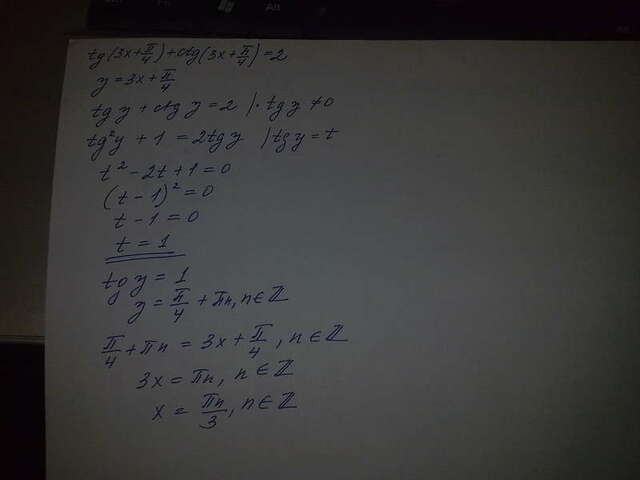 Alt
tg(3x+π/4)+ctg(3x+π/4)=2
y=3x+π/4
tg y + ctg y = 2 |· tg y ≠0
tg²y + 1 = 2tgy |tgy=t
t²-2t+1=0
(t-1)²=0
t-1=0
t=1
tg y = 1
y=π/4+πn, n∈ℤ
π/4+πn = 3x+π/4, n∈ℤ
3x=πn, n∈ℤ
x=πn/3, n∈ℤ